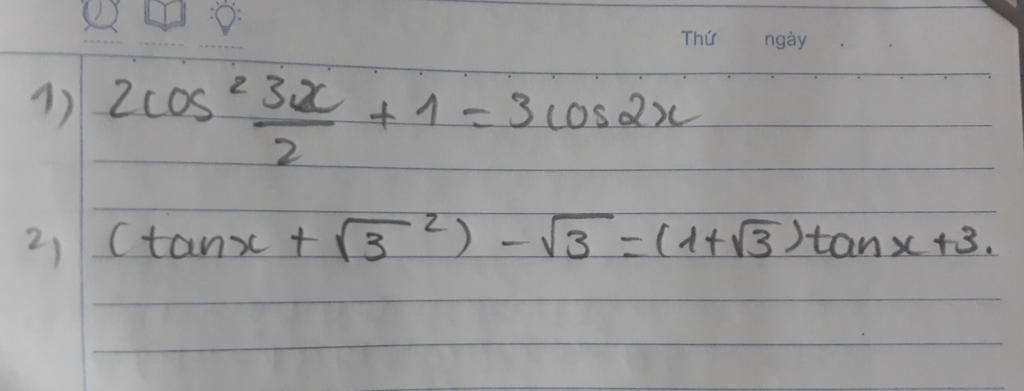 Thứ ngày . .
1) 2cos² 3x/2 + 1 = 3cos2x
2) (tanx + √3 ²) - √3 = (1+√3)tanx+3.